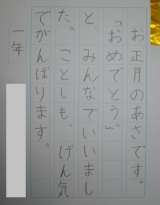 お正月のあさです。
「おめでとう」
と みんなでいいまし
た。 ことしも、げん気
でがんばります。
一年